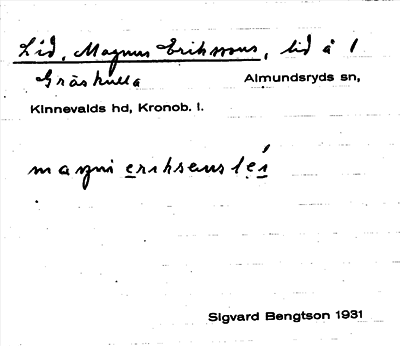 Lid, Magnus Erikssons, lid å 1
Gräskulla Almundsryds sn,
Kinnevalds hd, Kronob. l.
magni eriksens léi
Sigvard Bengtson 1931